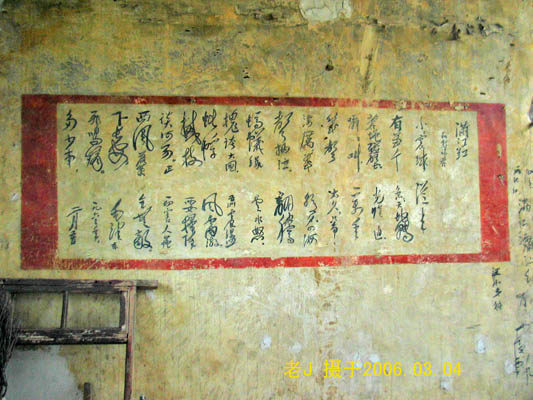 满江红
小小寰球
有几个
苍蝇碰壁
嗡嗡叫
几声
凄厉几
声抽泣
蚂蚁缘
槐夸大国
蚍蜉
撼树
谈何易正
西风落叶
下长安
飞鸣镝
多少事
从来
急天地转
光阴迫
一万年
太久只争
朝夕四海
翻腾
云水怒
五洲震荡
风雷激
要扫除
一切害人虫
全无敌
毛泽东
一九六三年
二月五日
老J 摄于2006.03.04